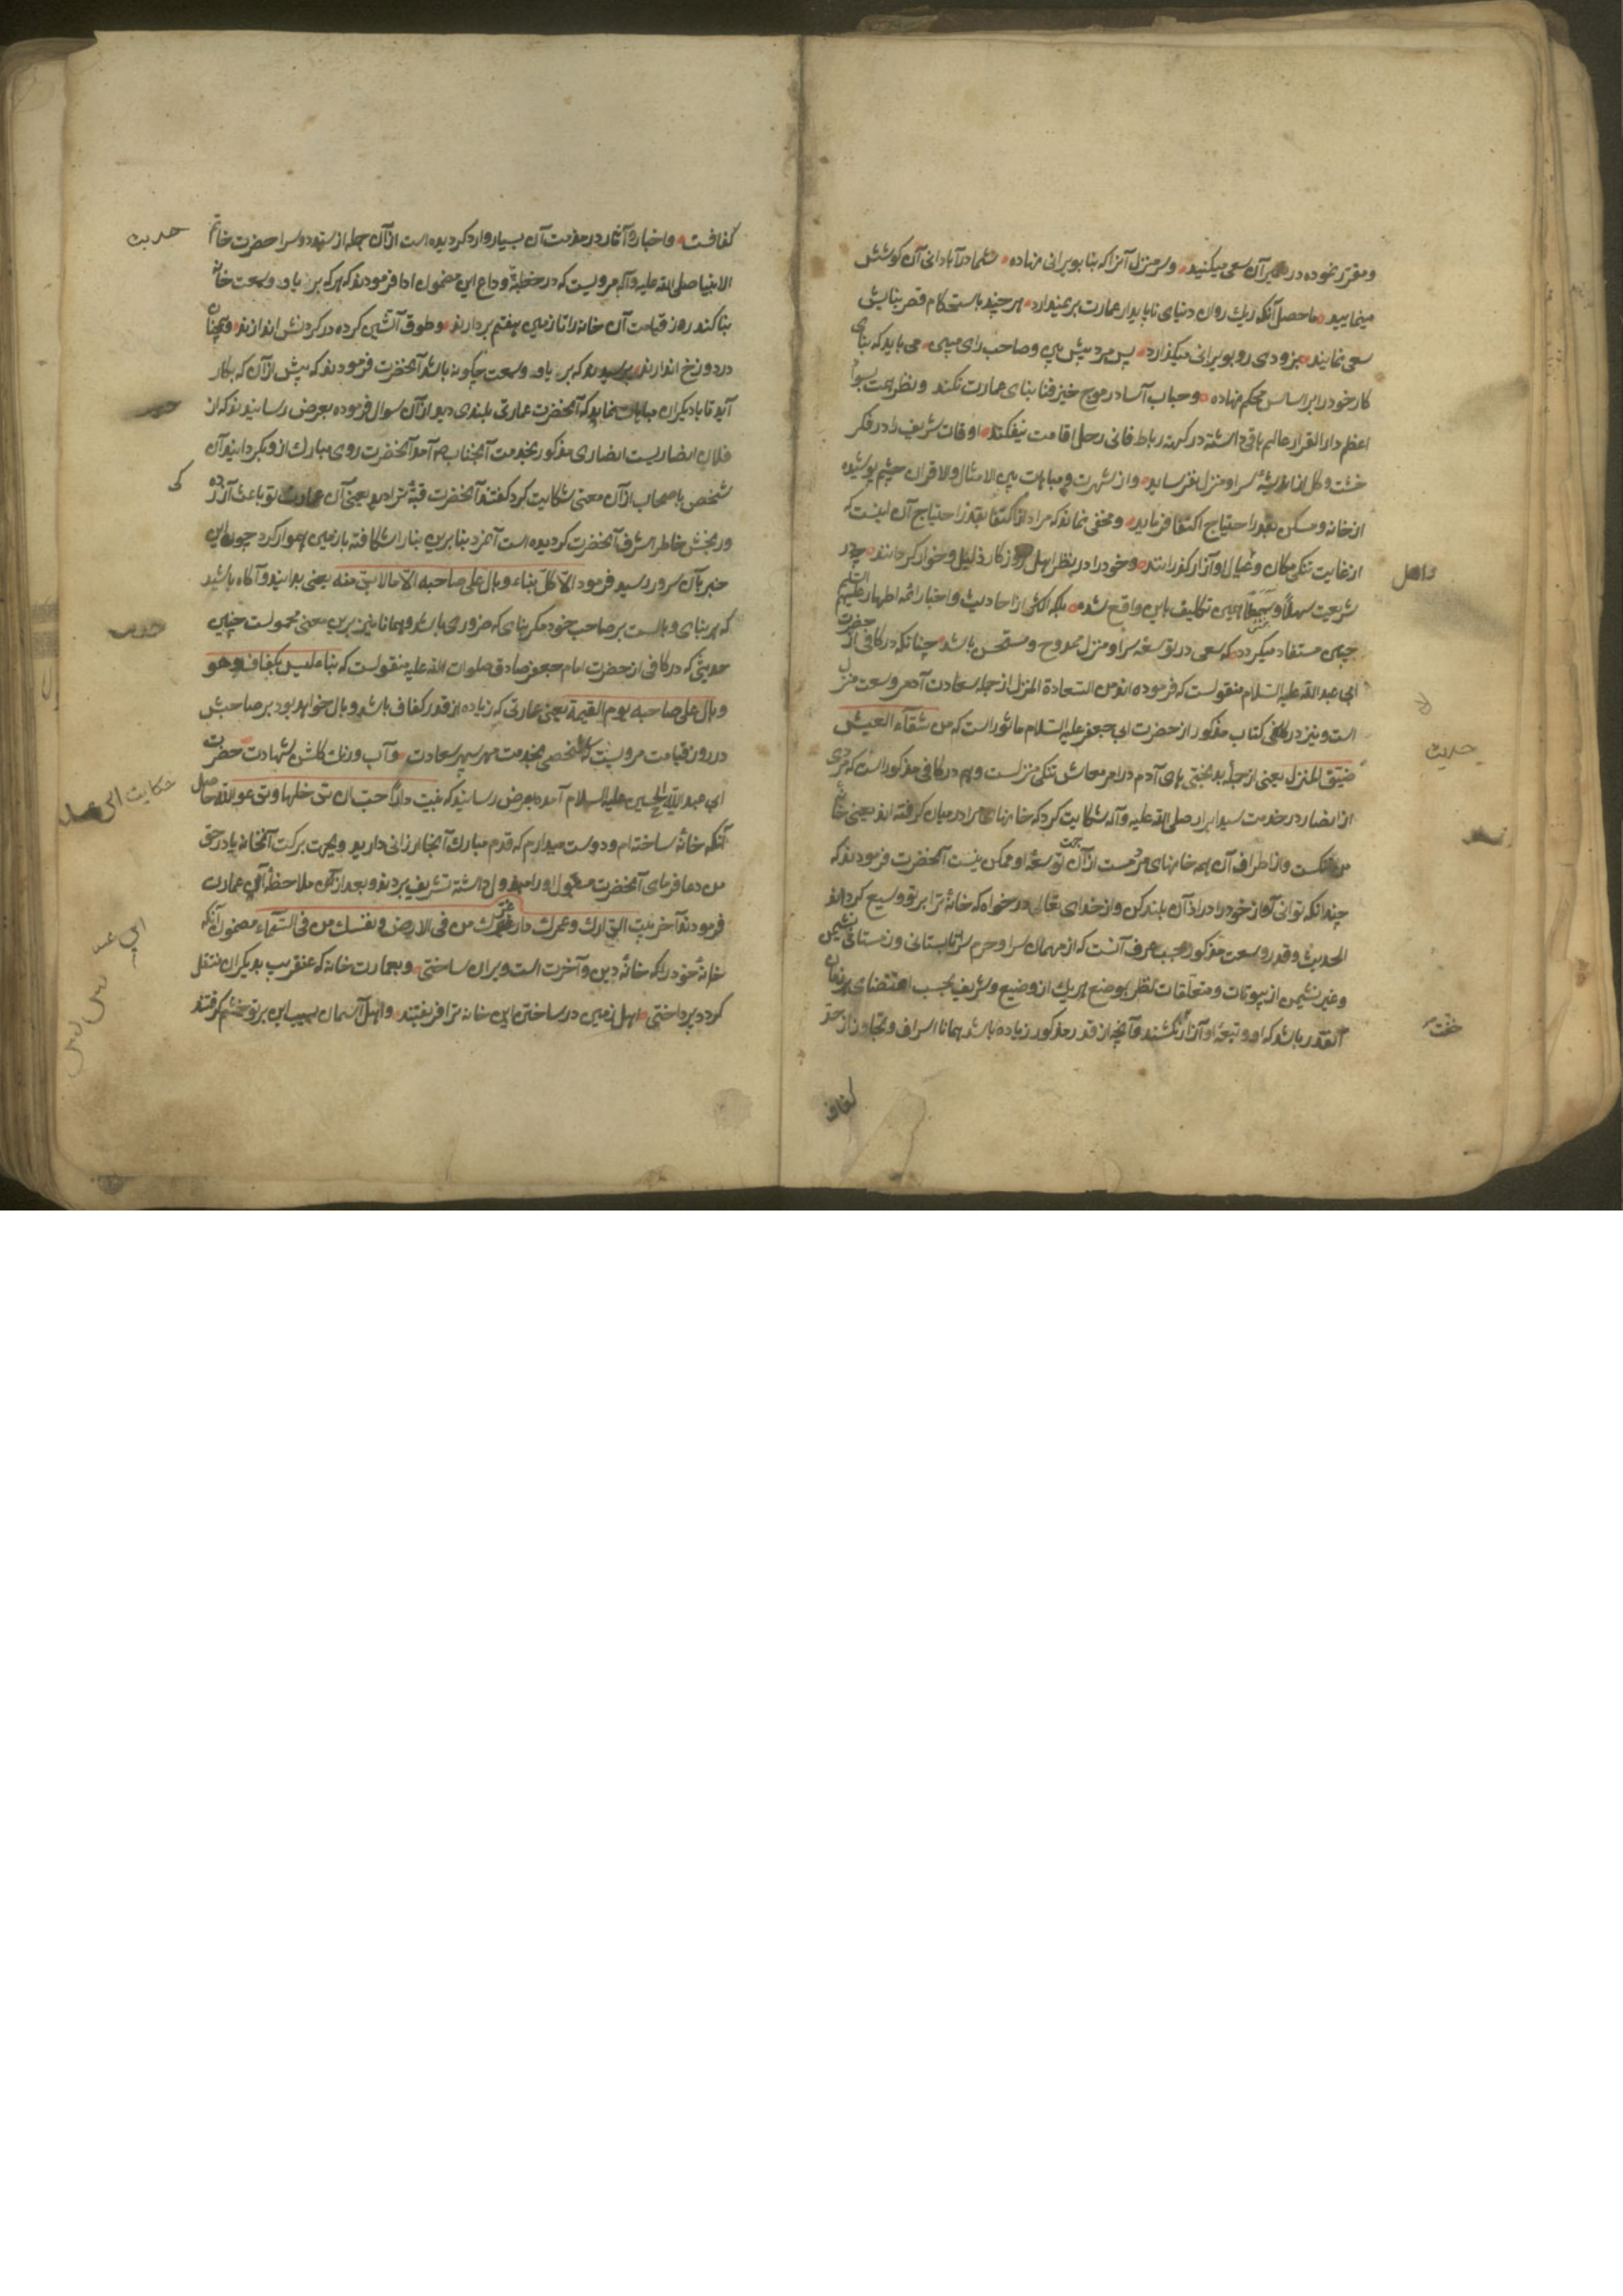 ومقرر نموده در تعمیر آن سعی میکنید وسر منزل آنرا که بنا بویرانی نهاده شما در آبادانی آن کوشش
مینمایید ماحصل آنکه ریك روان دنیای ناپایدار عمارت برنمیدارد هر چند باستحکام قصر بنایش
سعی نمایند بزودی رو بویرانی میگذارد پس مرد پیش بین وصاحب رای مبین می باید که بنای
کار خود را بر اساس محکم نهاده وحباب آسا در موج خیز فنا بنای عمارت نکند ونظر همت بسواد
اعظم دار القرار عالم باقی داشته در کهنه رباط فانی رحل اقامت نیفکند اوقات شریف را در فکر
خشت وگل اندیشهٔ سرا ومنزل نفرساید واز شهرت ومباهات بین الامثال والاقران چشم پوشیده
از خانه ومسکن بقدر احتیاج اکتفا فرماید ومخفی نماند که مراد از اکتفا بقدر احتیاج آن نیست که
از غایت تنکی مکان وعیال او آزار کذرانند وخود را در نظر اهل روزکار ذلیل وخوار کرداند چه در
شریعت سهلهٔ چنین تکالیف باین واقع نشده بلکه اکثر از احادیث واخبار ائمه اطهار علیهم السلم
چنین مستفاد میکردد که سعی در توسعه سرا ومنزل ممدوح ومستحسن باشد چنانکه در کافی از حضرت
ابی عبد الله علیه السلام منقولست که فرموده اند من السعادة المنزل از جمله سعادت آدمی وسعت منزل
است ونیز در کتاب مذکور از حضرت ابی جعفر علیه السلام ماثور است که من شقآء العیش
ضیق المنزل یعنی از جملهٔ بدبختی بای آدم در امر معاش تنکی منزلست وهم در کافی مذکور است که مردی
از انصار در خدمت سید ابرار صلی الله علیه وآله شکایت کرد که خانهای مرا در میان کرفته اند یعنی خانهٔ
من تنکست واز اطراف آن همه خانهای مردمست از آن جهت توسعهٔ او ممکن نیست آنحضرت فرمودند که
چندانکه توانی آواز خود را در اذآن بلند کن واز خدای تعالی درخواه که خانهٔ ترا بر تو وسیع کرداند
الحدیث وقدر وسعت مذکور بحسب عرف آنست که از مهمان سرا وحرم سرا تابستانی وزمستانی نشیمن
وغیر نشیمن از بیوتات ومتعلقات نظر بوضع هریك از وضیع وشریف بحسب اقتضای هر زمان
آنقدر باشد که او وتبعهٔ او آزار نکشند وآنچه از قدر مذکور زیاده باشد همانا اسراف وتجاوز از حد
کفاف
حدیث
کفافست واخبار وآثار در مذمت آن بسیار وارد کردیده است از آن جمله از سید دوسرا حضرت خاتم
الانبیا صلی الله علیه وآله مرویست که در خطبهٔ وداع این مضمون ادا فرمودند که هر که بریا وسمعت خانهٔ
بنا کند روز قیامت آن خانه را تا زمین هفتم بردارند وطوق آتشین کرده در کردنش اندازند وهمچنان
در دوزخ اندازند پرسیدند که بریا وسمعت چکونه باشد آنحضرت فرمودند که بیش از آن که بکار
آید تا با دیکران مباهات نماید که آنحضرت عمارتی بلندی دید از آن سوال فرموده بعرض رسانیدند که از
فلان انصاریست انصاری مذکور بخدمت آنجناب آمد آنحضرت روی مبارك از وبکردانید آن
شخص باصحاب از آن معنی شکایت کرد کفتند آنحضرت قبهٔ ترا دید یعنی آن عمارت تو باعث آزرده
ورنجش خاطر اشرف آنحضرت کردیده است آنمرد بنا برین بنا را شکافته با زمین هموار کرد چون این
خبر بآن سرور رسید فرمود الا کل بناء وبال علی صاحبه الا مالا بد منه یعنی بدانید وآکاه باشید
که هر بنای وبالست بر صاحب خود مکر بنای که ضروری باشد وهمانا نیز برین معنی محمولست چنین
حدیثی که در کافی از حضرت امام جعفر صادق صلوات الله علیه منقولست که بناء لیس بکفاف فهو
وبال علی صاحبه یوم القیمة یعنی عمارتی که زیاده از قدر کفاف باشد وبال خواهد بود بر صاحبش
در روز قیامت مرویست که شخصی بخدمت مهر سپهر سعادت وآب ورنك کلشن شهادت حضرت
ابی عبد الله الحسین علیه السلام آمده بعرض رسانید که بنیت دارا احب ان تدخلها وتدعو الله حاصل
آنکه خانهٔ ساخته ام ودوست میدارم که قدم مبارك آنجا ارزانی دارید وبجهت برکت آنخانه یا در حق
من دعا فرمای آنحضرت مقبول او را مبذول داشته تشریف بردند وبعد از آن ملاحظهٔ آن عمارت
فرمودند آخر بیت دارك وعمرت دار غیرك غرك من فی الارض ومقتك من فی السمآء مضمون آنکه
خانهٔ خود را که خانهٔ دین وآخرت است ویران ساختی وبعمارت خانه که عنقریب بدیکران منتقل
کردد پرداختی اهل زمین در ساختن این خانه ترا فریفتند واهل آسمان بسبب این بر تو خشم کرفتند
حدیث
حدیث
حکایت ابی عبد